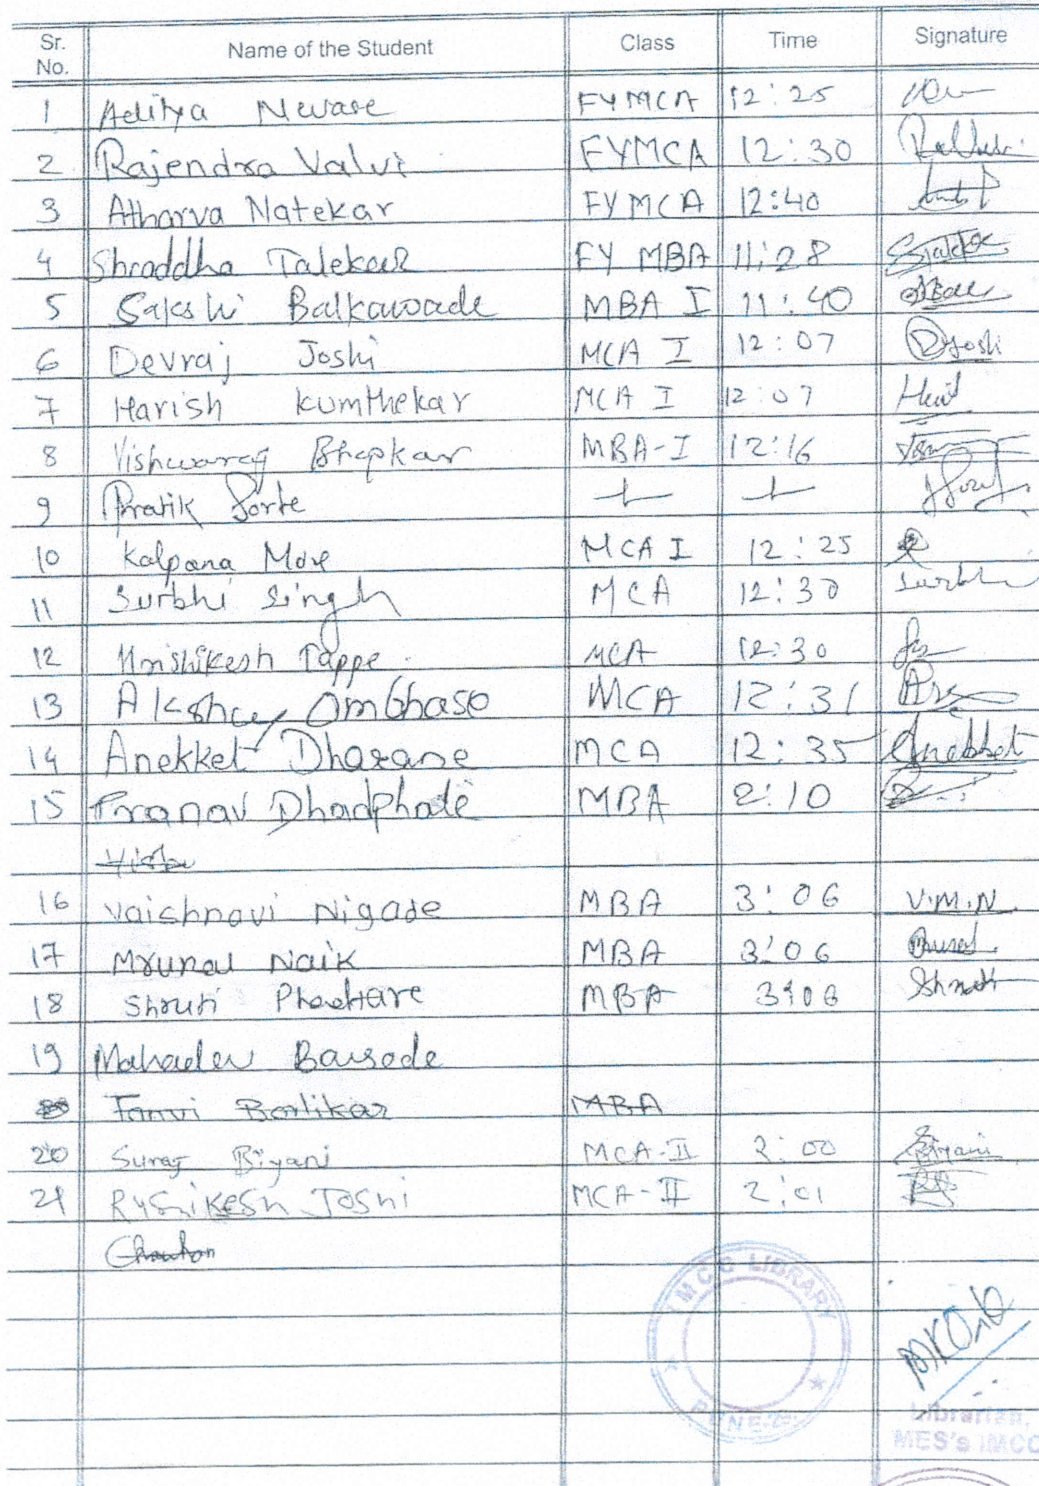 Sr. No. Name of the Student Class Time Signature
1 Aditya Neware FYMCA 12:25
2 Rajendra Valvi FYMCA 12:30
3 Atharva Natekar FYMCA 12:40
4 Shraddha Talekar FY MBA 11:28
5 Sakshi Balkawade MBA I 11:40
6 Devraj Joshi MCA I 12:07 DJoshi
7 Harish Kumthekar MCA I 12:07
8 Vishwaraj Bhapkar MBA-I 12:16
9 Pratik
10 Kalpana More MCA I 12:25
11 Surbhi Singh MCA 12:30 Surbhi
12 Hrishikesh Tappe MCA 12:30
13 Akshay Ombhase MCA 12:31
14 Anekket Dharane MCA 12:35 Anekket
15 Pranav Dhadphale MBA 2:10
16 Vaishnavi Nigade MBA 3:06 V.M.N.
17 Mrunal Naik MBA 3:06
18 Shruti MBA 3:06 Shruti
19 Mahadev
Tanvi Borlikar MBA
20 Suraj Biyani MCA-II 2:00 Biyani
21 Rushikesh Joshi MCA-II 2:01
IMCC LIBRARY
PUNE
Librarian,
MES's IMCC